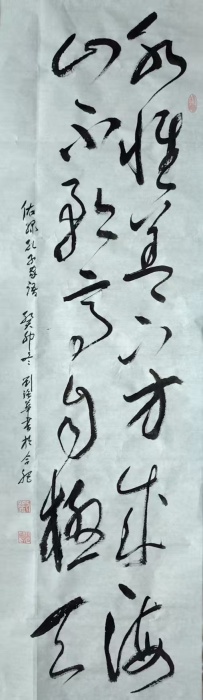 水惟善下方成海
山不矜高自極天
錄孔子家語 癸卯冬 劉 華書於合肥